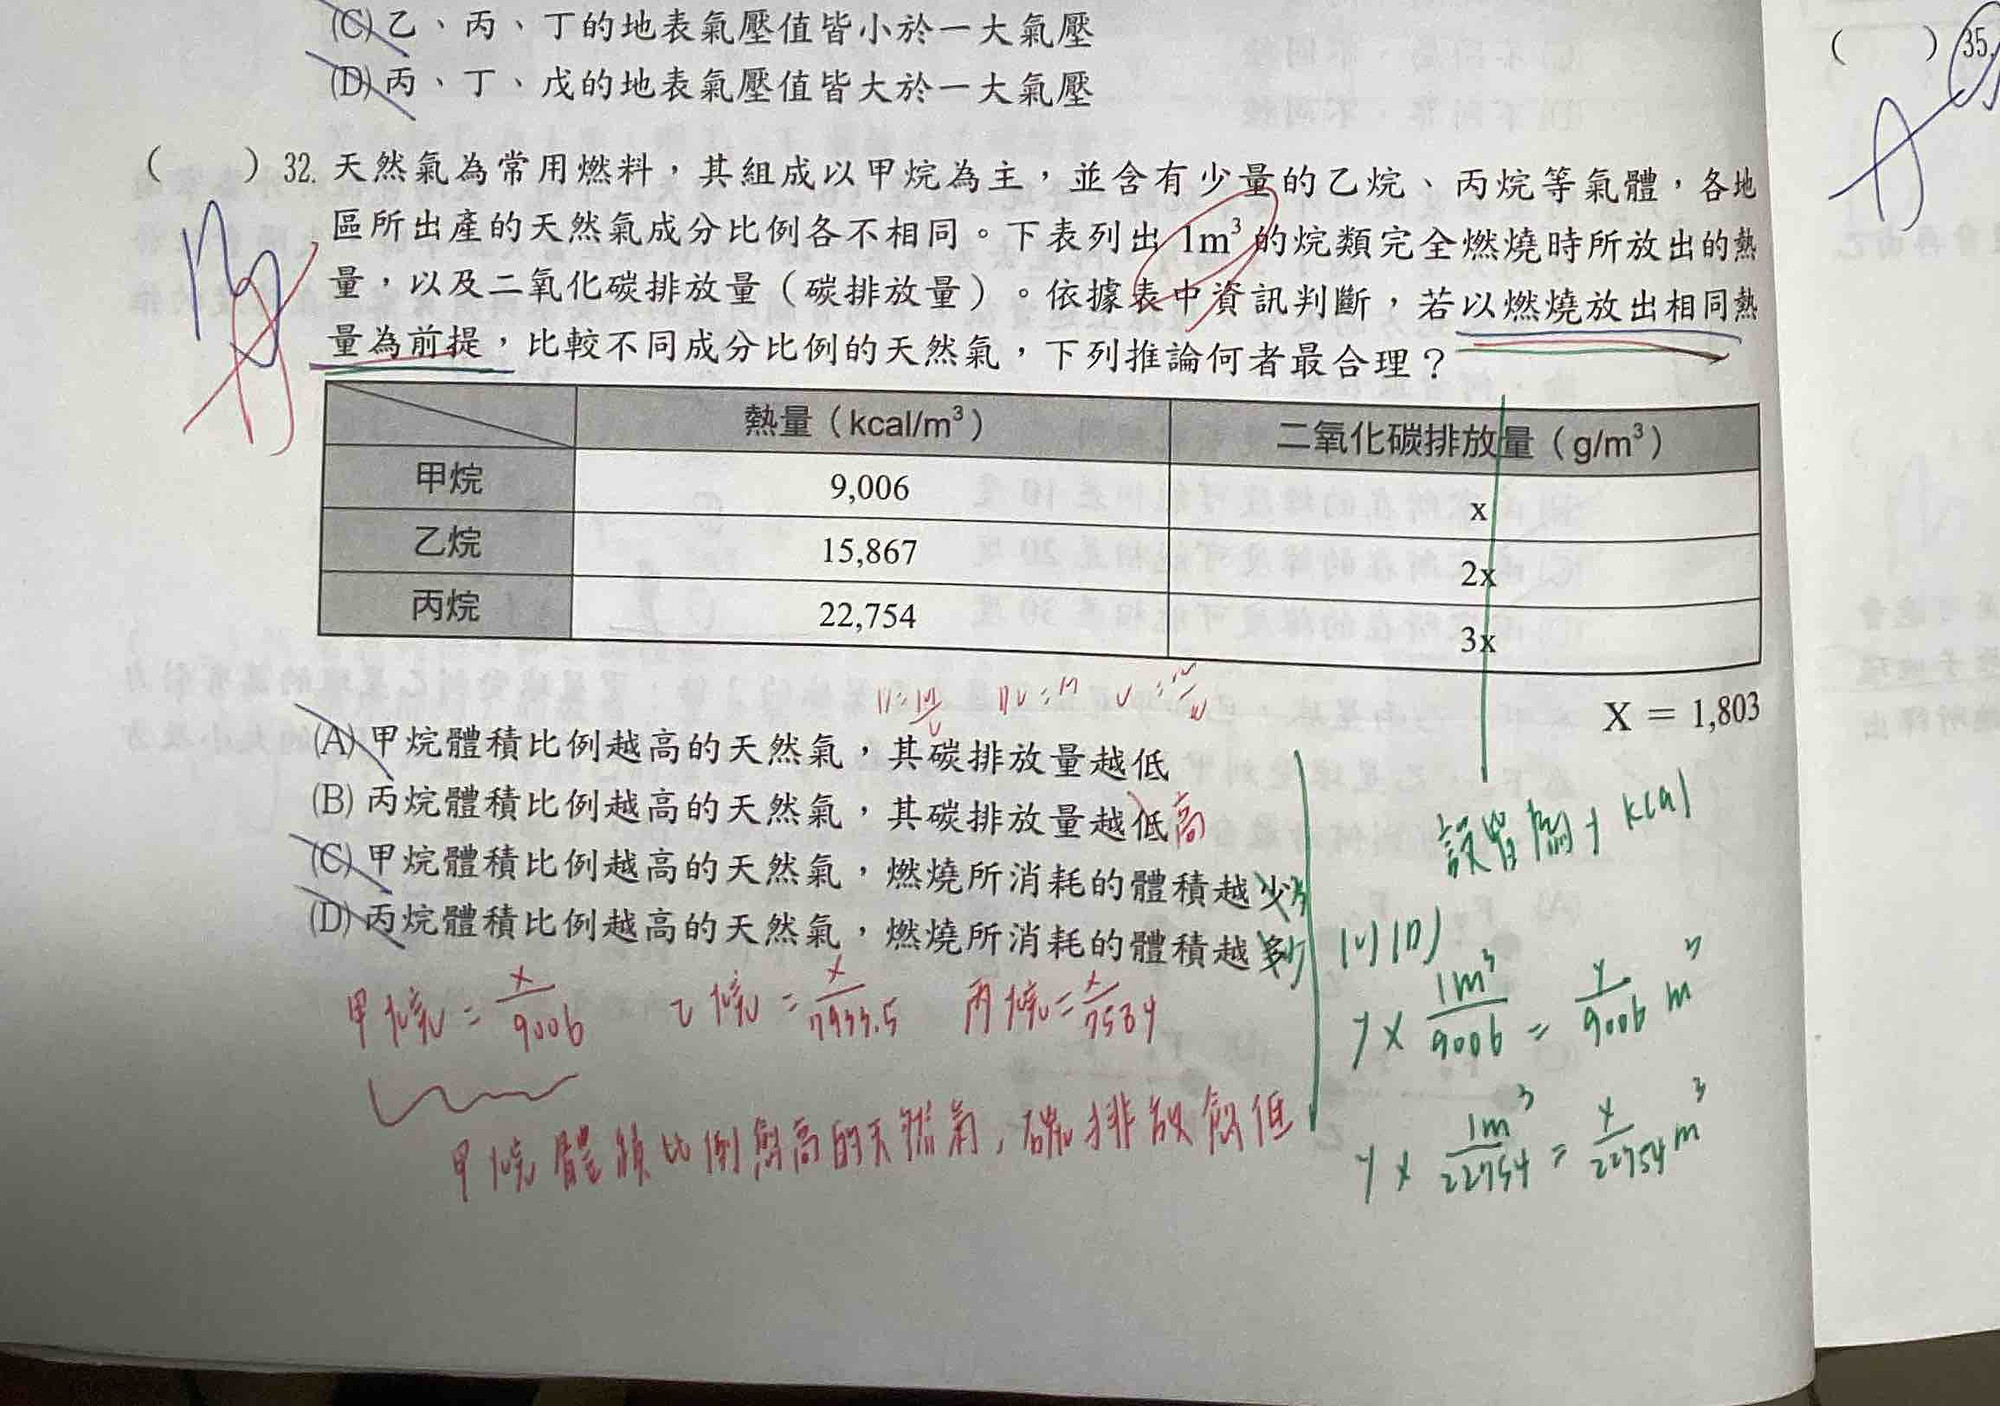 (C) 乙、丙、丁的地表氣壓值皆小於一大氣壓
(D) 丙、丁、戊的地表氣壓值皆大於一大氣壓
( ) 35.
A
( ) 32. 天然氣為常用燃料，其組成以甲烷為主，並含有少量的乙烷、丙烷等氣體，各地
區所出產的天然氣成分比例各不相同。下表列出 1m³ 的烷類完全燃燒時所放出的熱
量，以及二氧化碳排放量（碳排放量）。依據表中資訊判斷，若以燃燒放出相同熱
量為前提，比較不同成分比例的天然氣，下列推論何者最合理？
熱量（kcal/m³） 二氧化碳排放量（g/m³）
甲烷 9,006 x
乙烷 15,867 2x
丙烷 22,754 3x
X = 1,803
(A) 甲烷體積比例越高的天然氣，其碳排放量越低
(B) 丙烷體積比例越高的天然氣，其碳排放量越低高
(C) 甲烷體積比例越高的天然氣，燃燒所消耗的體積越少多
(D) 丙烷體積比例越高的天然氣，燃燒所消耗的體積越多少
甲烷 = x/9006 乙烷 = x/7933.5 丙烷 = x/7584
甲烷體積比例愈高的天然氣，碳排放愈低
設皆為 y kcal
y × 1m³/9006 = y/9006 m³
y × 1m³/22754 = y/22754 m³